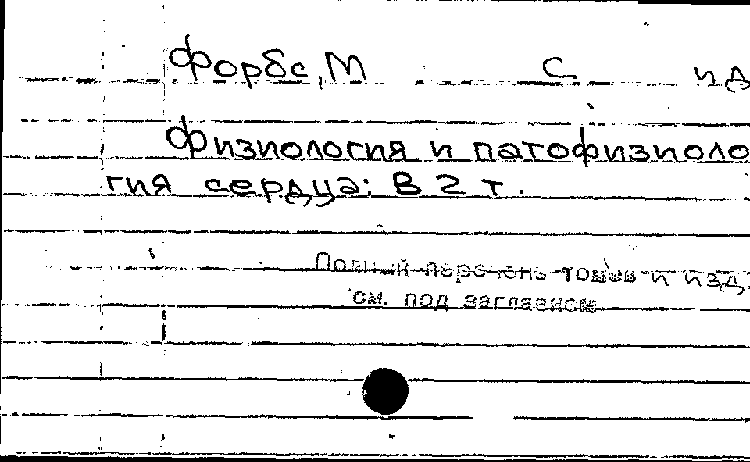 Форбс, М С ид
Физиология и патофизиоло
гия сердца: В 2 т.
Полный перечень томов и изд.
см. под заглавием